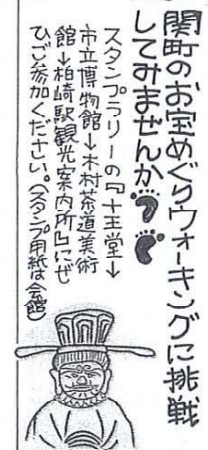 関町のお宝めぐりウォーキングに挑戦
してみませんか
スタンプラリーの『十王堂→
市立博物館→木村茶道美術
館→柏崎駅観光案内所』にぜ
ひご参加ください。(スタンプ用紙は会館)